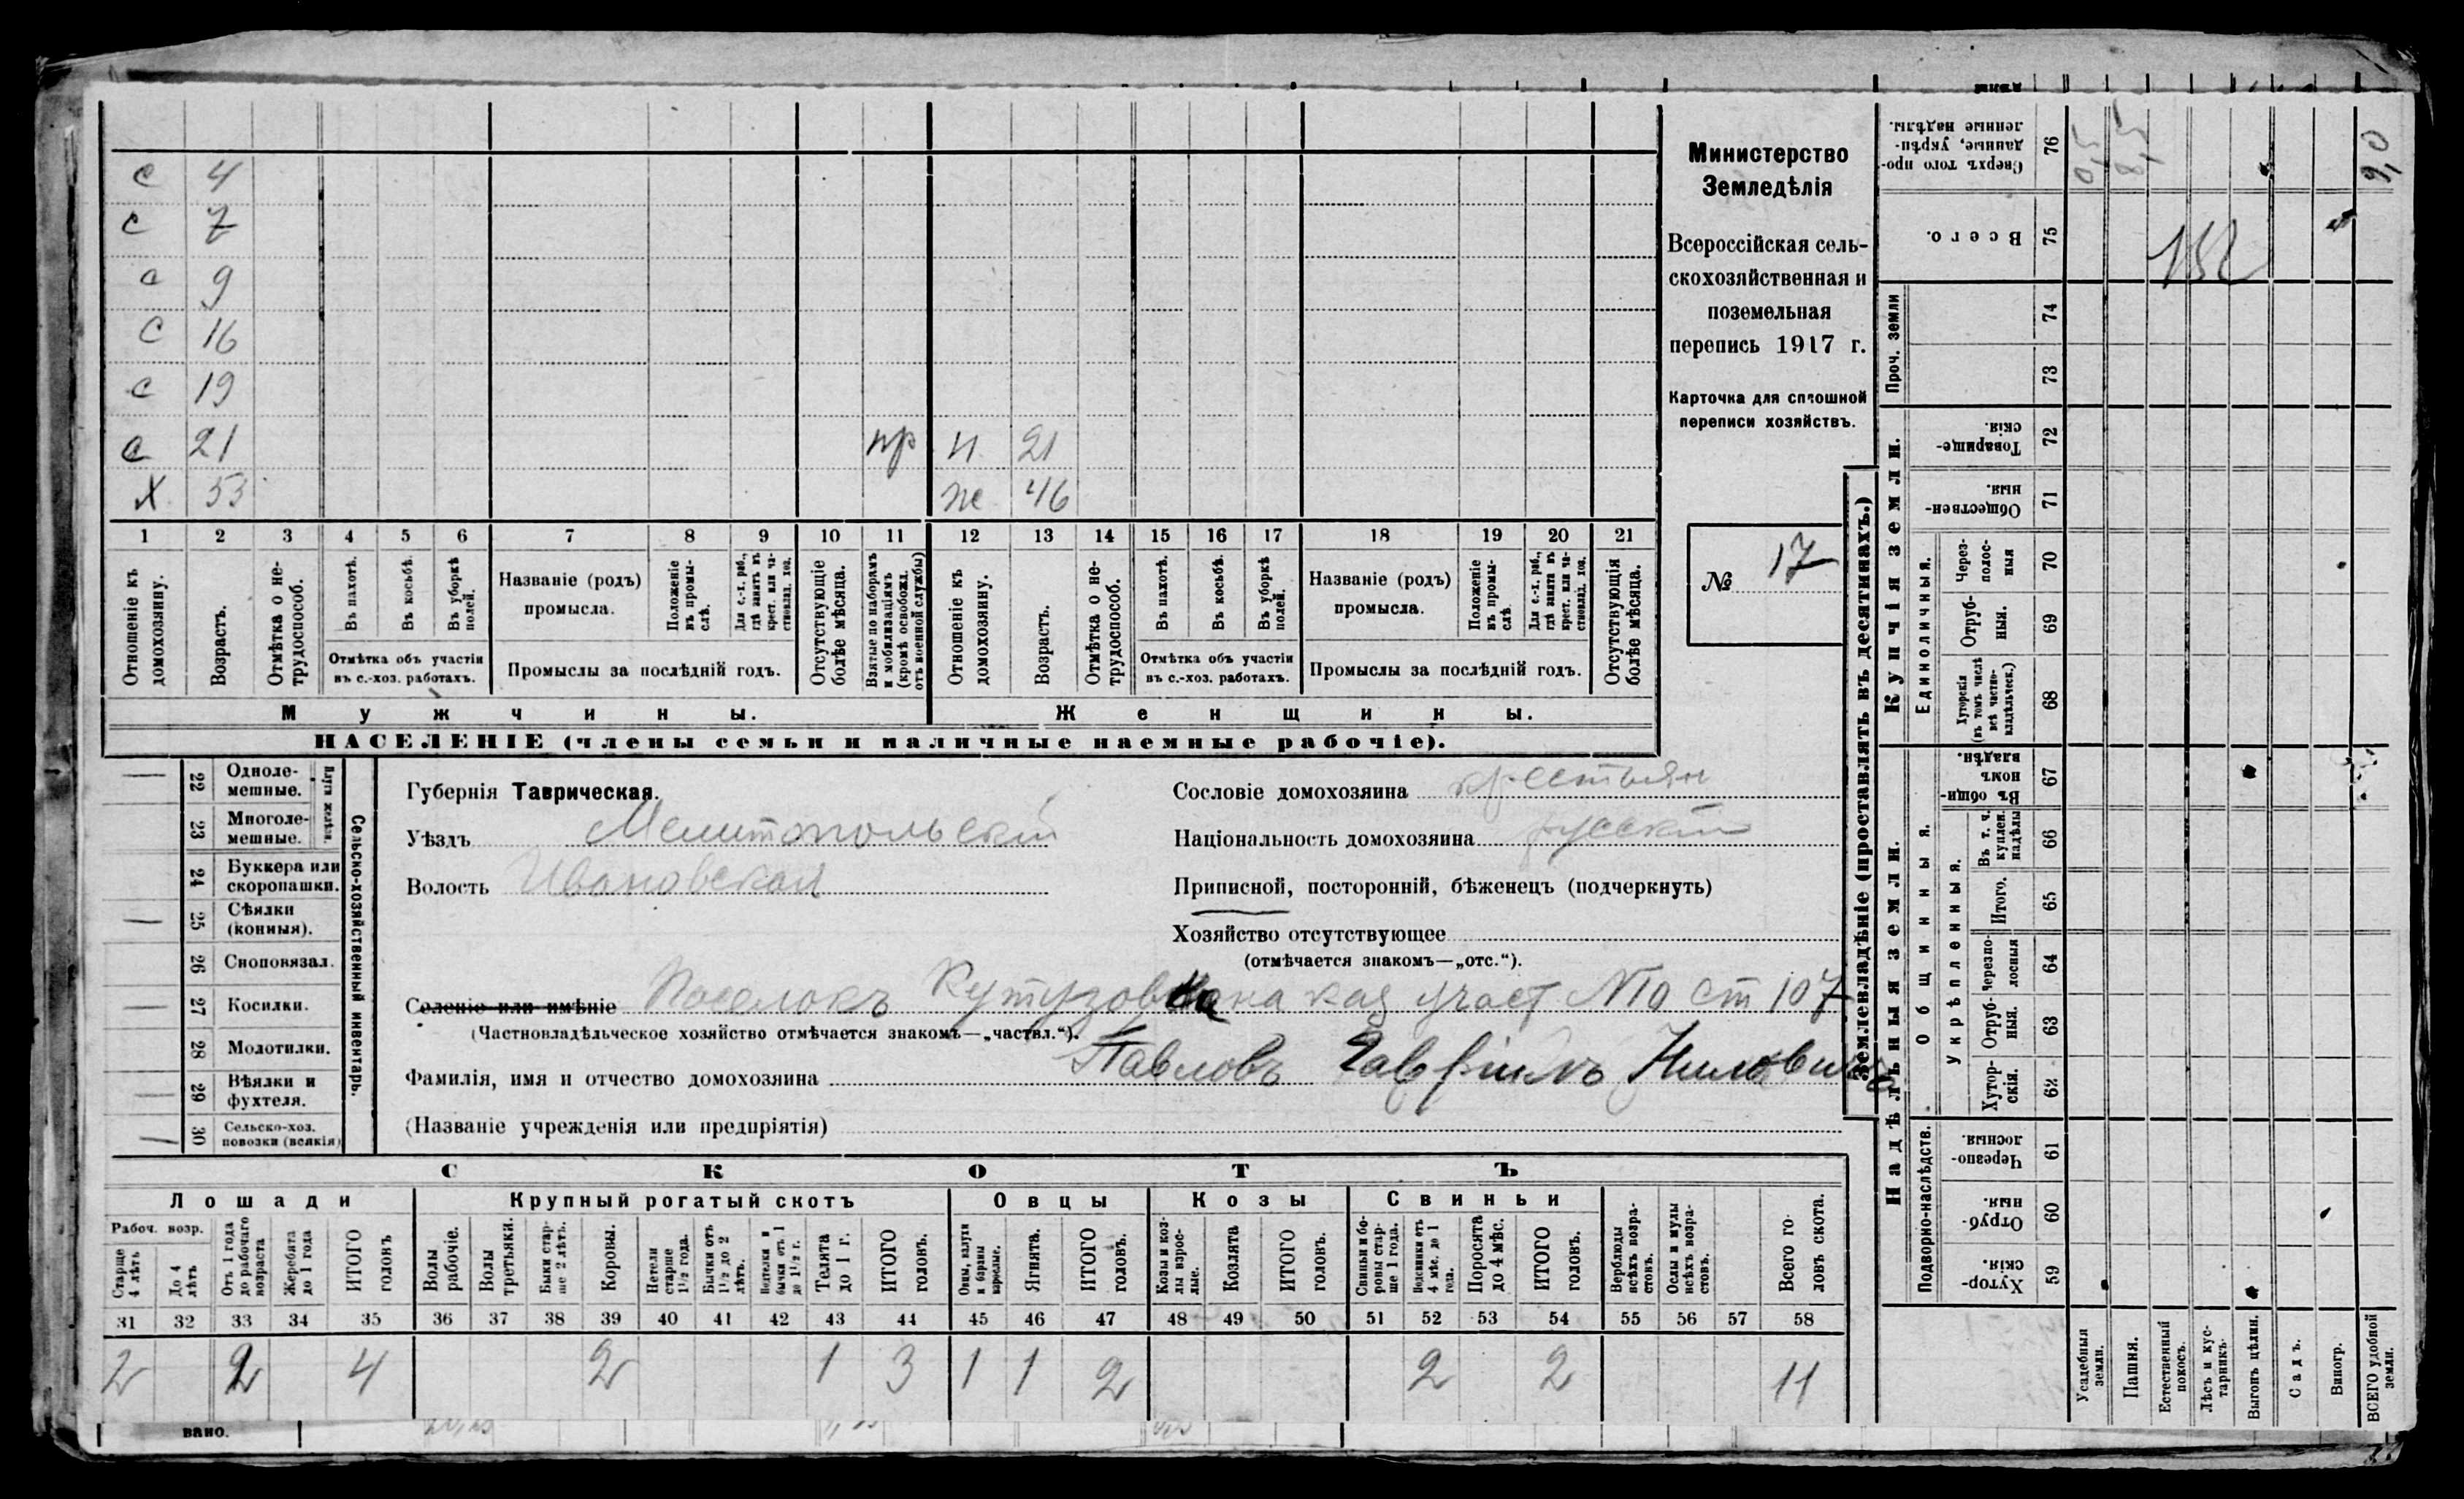 с 4
с 7
с 9
с 16
с 19
с 21 пр н 21
х 53 ж 46
1 2 3 4 5 6 7 8 9 10 11 12 13 14 15 16 17 18 19 20 21
Отношеніе къ домохозяину.
Возрастъ.
Отмѣтка о не-трудоспособ.
Въ пахотѣ.
Въ косьбѣ.
Въ уборкѣ полей.
Отмѣтка объ участіи въ с.-хоз. работахъ.
Названіе (родъ) промысла.
Положеніе въ промы-слѣ.
Для с.-х. раб., гдѣ занятъ въ крест. или ча-стновлад. хоз.
Промыслы за послѣдній годъ.
Отсутствующіе болѣе мѣсяца.
Взятые по наборамъ и мобилизаціямъ (кромѣ освобожд. отъ военной службы)
Отношеніе къ домохозяину.
Возрастъ.
Отмѣтка о не-трудоспособ.
Въ пахотѣ.
Въ косьбѣ.
Въ уборкѣ полей.
Отмѣтка объ участіи въ с.-хоз. работахъ.
Названіе (родъ) промысла.
Положеніе въ промы-слѣ.
Для с.-х. раб., гдѣ занятъ въ крест. или ча-стновлад. хоз.
Промыслы за послѣдній годъ.
Отсутствующія болѣе мѣсяца.
Мужчины. Женщины.
НАСЕЛЕНІЕ (члены семьи и наличные наемные рабочіе).
Министерство
Земледѣлія
Всероссійская сель-
скохозяйственная и
поземельная
перепись 1917 г.
Карточка для сплошной
переписи хозяйствъ.
№ 17
Сельско-хозяйственный инвентарь.
22 Одноле-мешные.
23 Многоле-мешные.
24 Буккера или скоропашки.
25 Сѣялки (конныя).
26 Сноповязал.
27 Косилки.
28 Молотилки.
29 Вѣялки и фухтеля.
30 Сельско-хоз. повозки (всякія)
Губернія Таврическая.
Уѣздъ Мелитопольскій
Волость Ивановская
Сословіе домохозяина крестьян
Національность домохозяина русскій
Приписной, посторонній, бѣженецъ (подчеркнуть)
Хозяйство отсутствующее
(отмѣчается знакомъ—„отс.“).
Селеніе или имѣніе Поселокъ участ №10 ст 107
(Частновладѣльческое хозяйство отмѣчается знакомъ—„частвл.“).
Фамилія, имя и отчество домохозяина Павловъ Гавріилъ
(Названіе учрежденія или предпріятія)
СКОТЪ
Лошади Крупный рогатый скотъ Овцы Козы Свиньи
Рабоч. возр.
Старше 4 лѣтъ
До 4 лѣтъ
Отъ 1 года до рабочаго возраста
Жеребята до 1 года
ИТОГО головъ
Волы рабочіе.
Волы третьяки.
Быки стар-ше 2 лѣтъ.
Коровы.
Нетели старше 1½ года.
Бычки отъ 1½ до 2 лѣтъ.
Нетелики и бычки отъ 1 до 1½ г.
Телята до 1 г.
ИТОГО головъ.
Овцы, валухи и бараны взрослые.
Ягнята.
ИТОГО головъ.
Козы и коз-лы взрос-лые.
Козлята
ИТОГО головъ.
Свиньи и бо-ровы стар-ше 1 года.
Подсвинки отъ 4 мѣс. до 1 года.
Поросята до 4 мѣс.
ИТОГО головъ.
Верблюды всѣхъ возра-стовъ.
Ослы и мулы всѣхъ возра-стовъ.
Всего го-ловъ скота.
31 32 33 34 35 36 37 38 39 40 41 42 43 44 45 46 47 48 49 50 51 52 53 54 55 56 57 58
2 2 4 2 1 3 1 1 2 2 2 11
вано.
Землевладѣніе (проставлять въ десятинахъ.)
Надѣльныя земли. Купчія земли. Проч. земли
Подворно-наслѣдств.
Общинныя.
Укрѣпленныя.
Единоличныя.
Сверхъ того про-данные, укрѣп-ленные надѣлы. 76 0,5 8,5 9,0
Всего. 75 152
74
73
Товарище-скія. 72
Обществен-ныя. 71
Через-полос-ныя 70
Отруб-ныя. 69
Хуторскія (въ томъ числѣ всѣ частно-владѣльческ.) 68
Въ общи-номъ владѣн. 67
Въ т. ч. куплен. надѣлы 66
Итого. 65
Черезпо-лосныя 64
Отруб-ныя. 63
Хутор-скія. 62
Черезпо-лосныя. 61
Отруб-ныя. 60
Хутор-скія. 59
Усадебныя земли.
Пашня.
Естественный покосъ.
Лѣсъ и кус-тарникъ.
Выгонъ цѣлин.
Садъ.
Виногр.
ВСЕГО удобной земли.